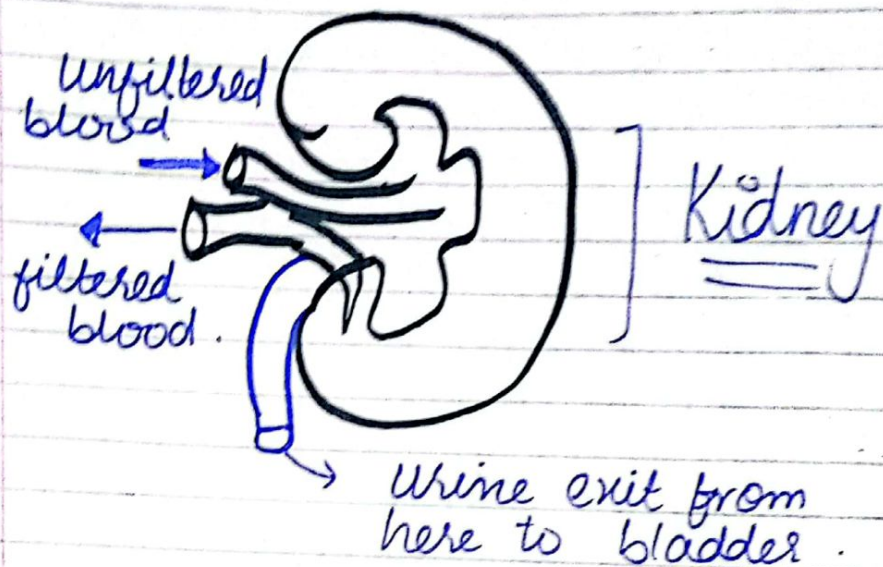 Unfiltered
blood
filtered
blood.
Kidney
Urine exit from
here to bladder.